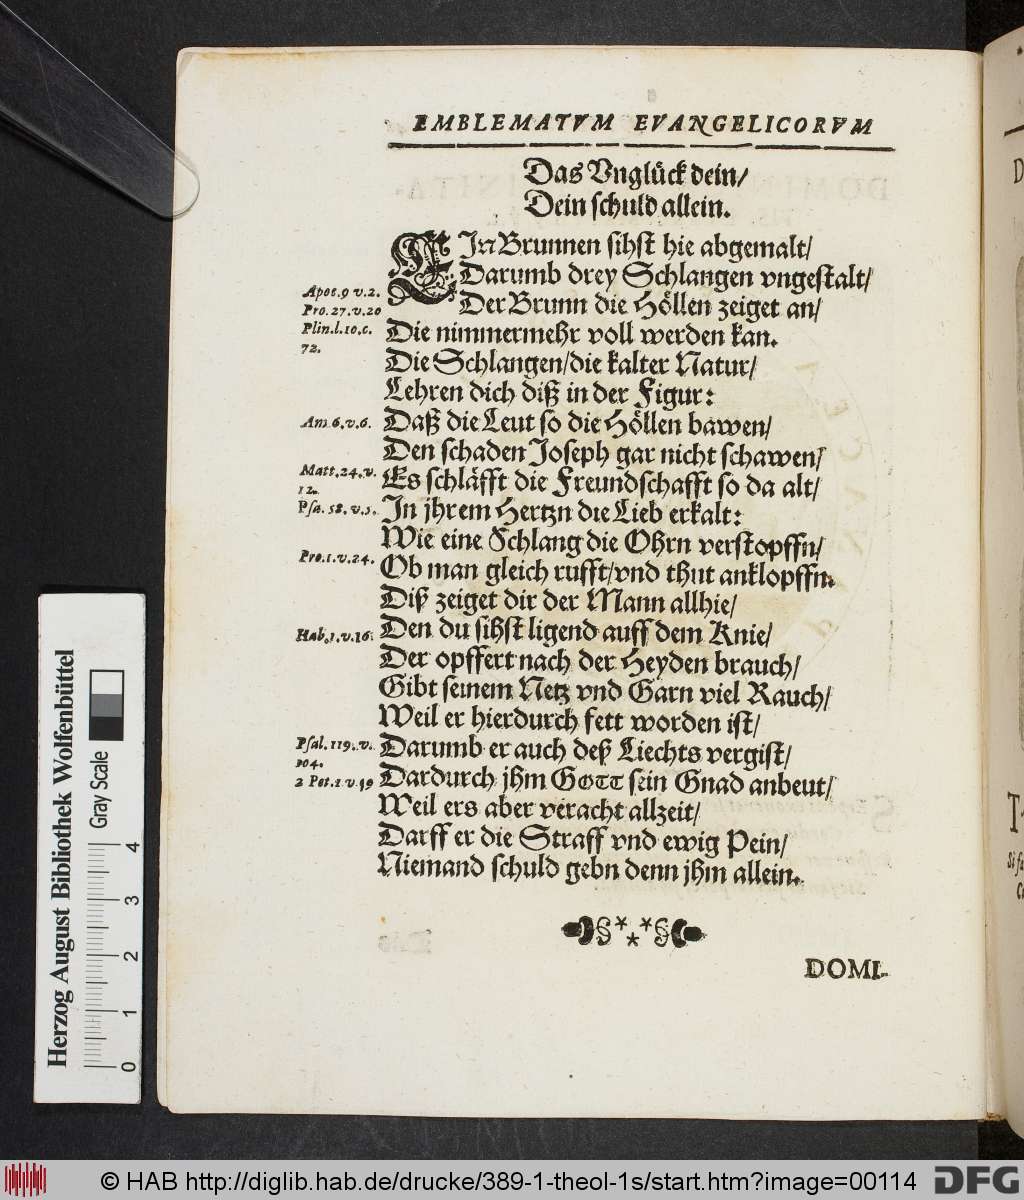 EMBLEMATVM EVANGELICORVM
Das Vnglück dein/
Dein schuld allein.
EJn Brunnen sihst hie abgemalt/
Darumb drey Schlangen vngestalt/
Apoc. 9 v. 2.
Der Brunn die Höllen zeiget an/
Pro. 27. v. 20
Plin. l. 10. c.
72.
Die nimmermehr voll werden kan.
Die Schlangen/die kalter Natur/
Lehren dich diß in der Figur:
Am. 6. v. 6.
Daß die Leut so die Höllen bawen/
Den schaden Joseph gar nicht schawen/
Matt. 24. v.
12.
Es schläfft die Freundschafft so da alt/
Psa. 58. v. 5.
In jhrem Hertzn die Lieb erkalt:
Wie eine Schlang die Ohrn verstopffn/
Pro. 1. v. 24.
Ob man gleich rufft/vnd thut anklopffn.
Diß zeiget dir der Mann allhie/
Hab. 1. v. 16.
Den du sihst ligend auff dem Knie/
Der opffert nach der Heyden brauch/
Gibt seinem Netz vnd Garn viel Rauch/
Weil er hierdurch fett worden ist/
Psal. 119. v.
104.
Darumb er auch deß Liechts vergist/
2 Pet. 1. v. 19
Dardurch jhm GOTT sein Gnad anbeut/
Weil ers aber veracht allzeit/
Darff er die Straff vnd ewig Pein/
Niemand schuld gebn denn jhm allein.
DOMI-
Herzog August Bibliothek Wolfenbüttel
Gray Scale
0 1 2 3 4
© HAB http://diglib.hab.de/drucke/389-1-theol-1s/start.htm?image=00114
DFG